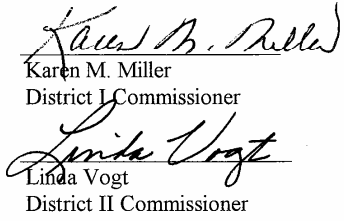 Karen M. Miller
Karen M. Miller
District I Commissioner
Linda Vogt
Linda Vogt
District II Commissioner